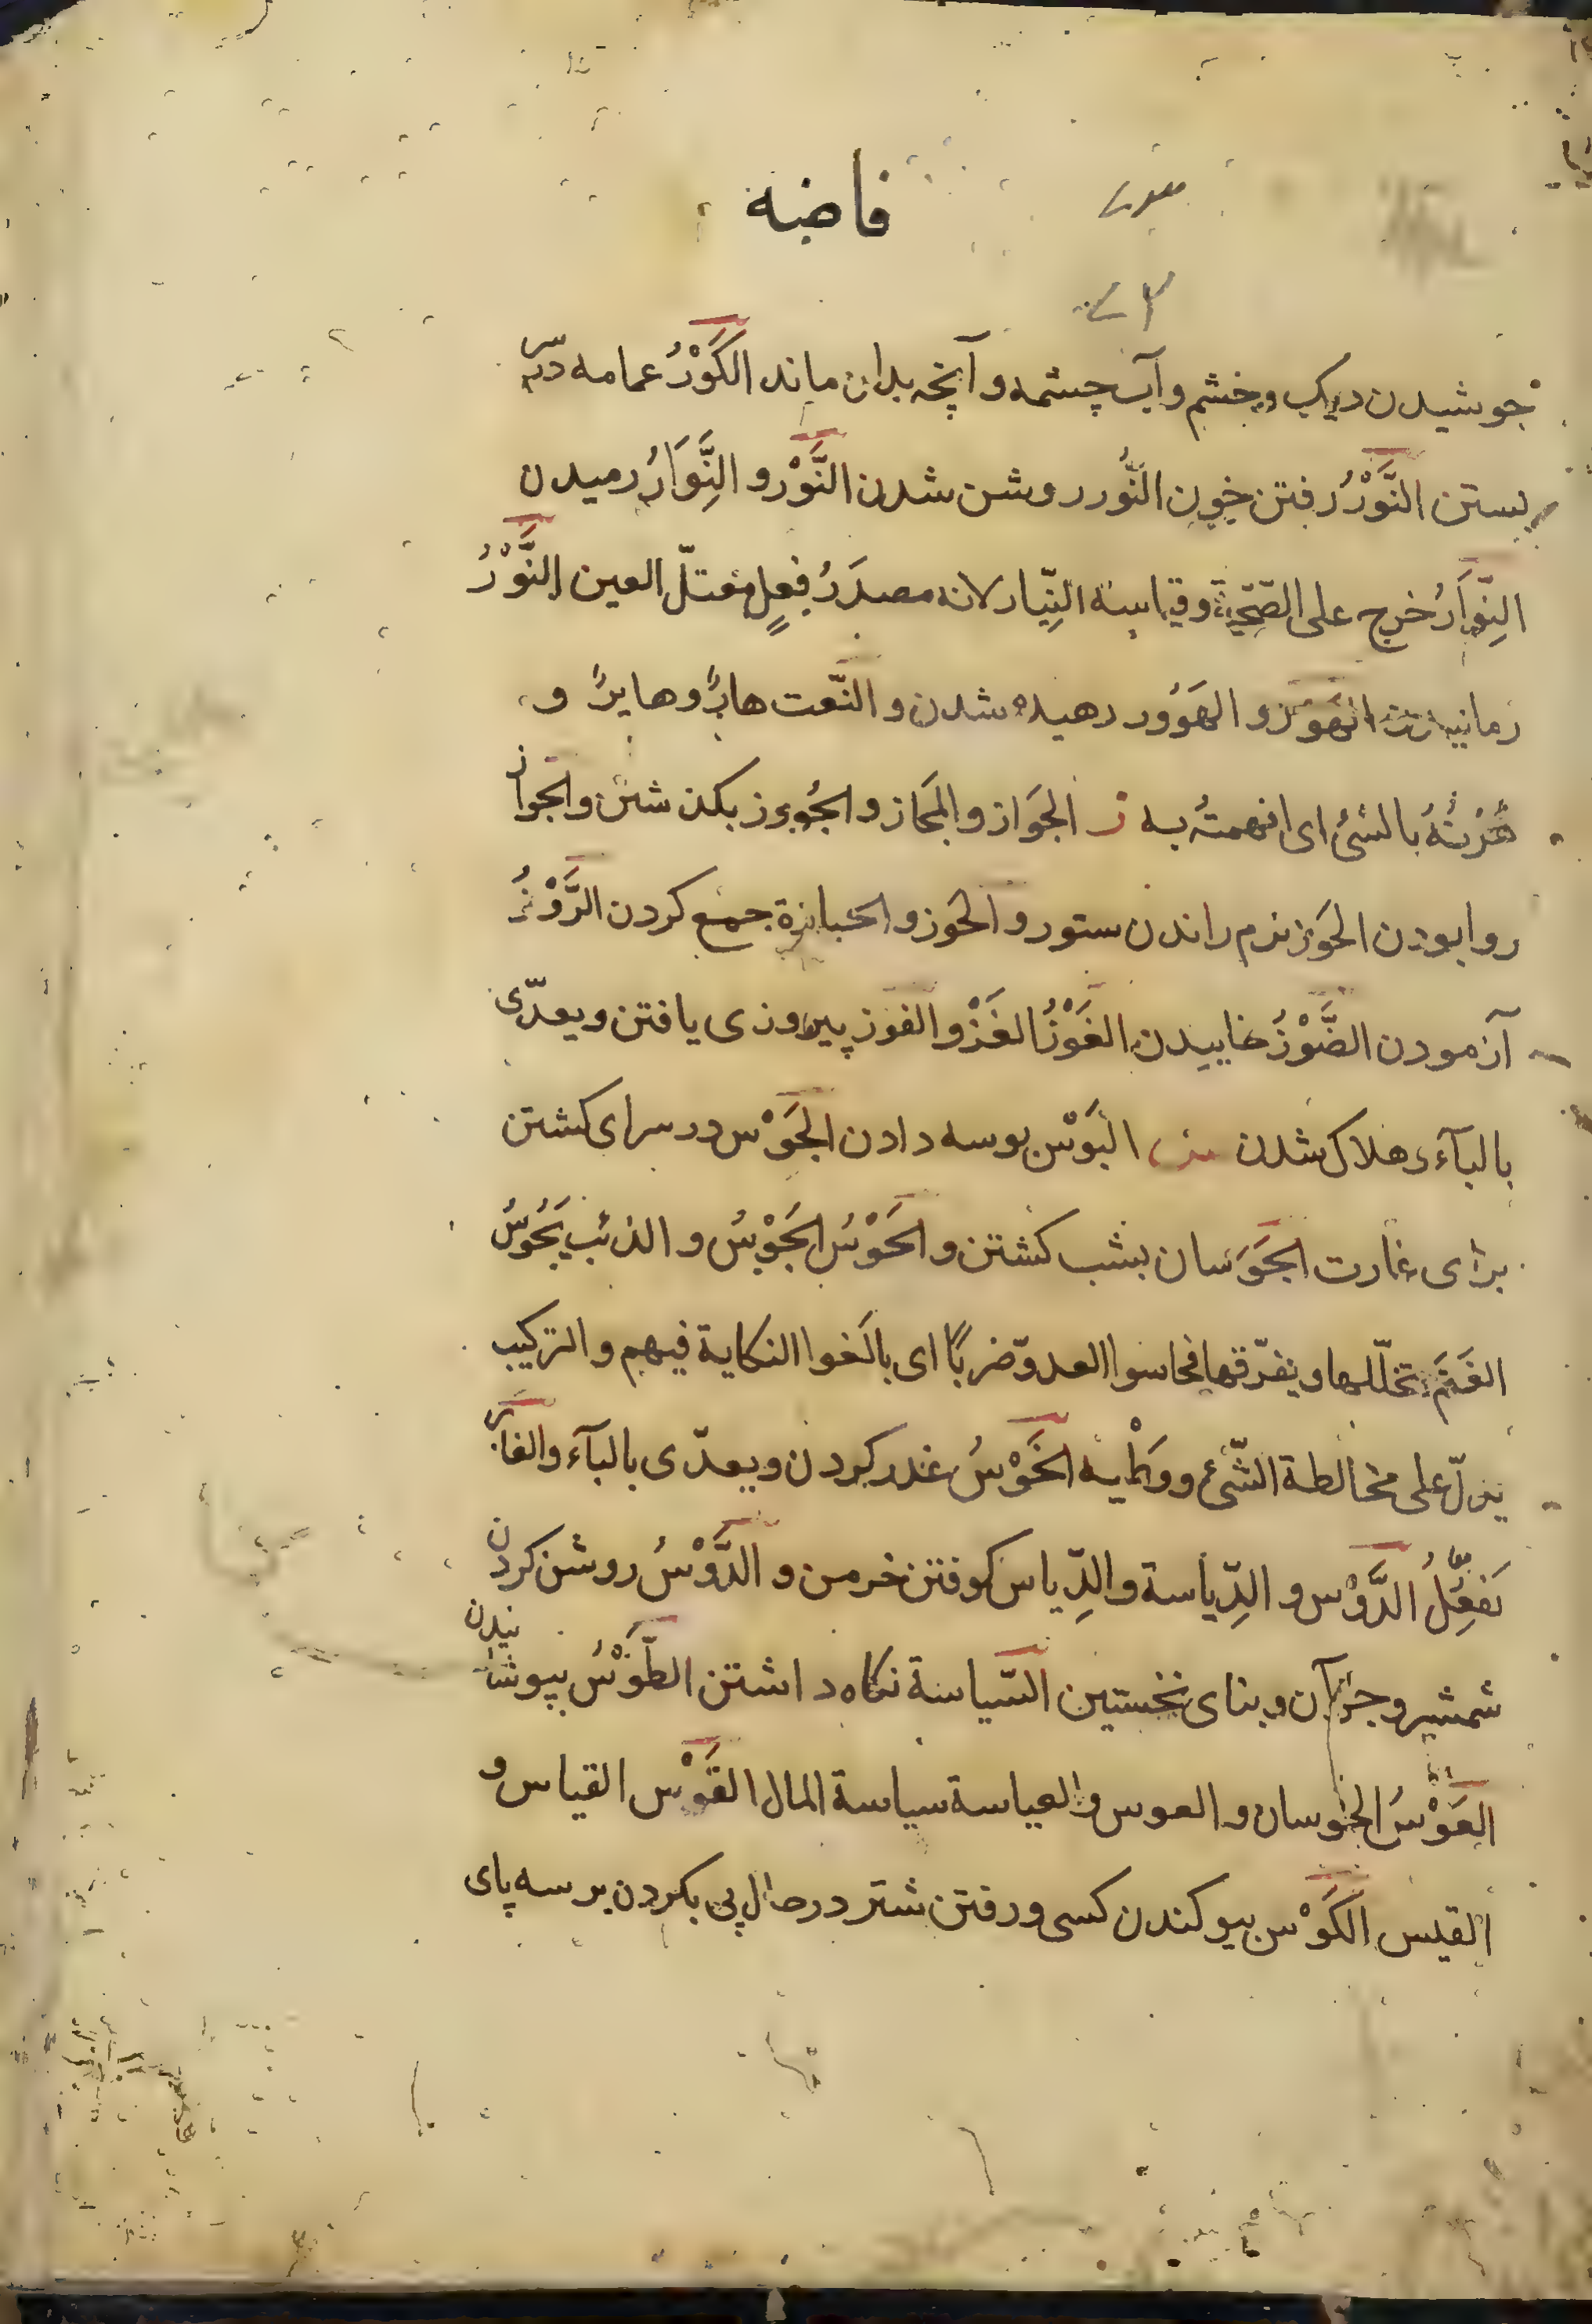 فاضبه
جوشیدن دیک وخشم وآب چشمه وآنچه بدان ماند الكَوْرُ عمامه درسر
بستن النَّوْرُ رفتن خون النُّور روشن شدن النَّوْر و النِّوَارُ رمیدن
النِّوَارُ خرج على الصّحّة وقیاسه النِّيار لانه مصدَرُ فعلٍ معتلّ العين النَّوْرُ
رمانیدن الهَوْر و الهَوُور رهیده شدن و النّعت هارٌ وهایرٌ و
هُرْتُهُ بالشئ ای اتهمتُه به ز الجَوَاز و المَجَاز و الجُووز بکذشتن والجواز
روا بودن الحَوْز نرم راندن ستور و الحَوز و الحيازة جمع کردن الرَّوْزُ
آزمودن الضَّوْزُ خاییدن الغَوْزُ الغَزْو الفوز پیروزی یافتن ویعدّی
بالبآء و هلاک شدن س البَوْس بوسه دادن الجَوْس در سرای کشتن
برای غارت الجَوَسان بشب کشتن و الحَوْسُ الجَوْسُ و الذئب يَحُوسُ
الغَنَمَ يتخلّلها ويفرّقها فحاسوا العدوّ ضربًا ای بالَغوا النكاية فيهم و التركيب
يدلّ على مخالطة الشّئ ووَطْیه الخَوْسُ غدر کردن ویعدّی بالبآء والغابر
يَفعِلُ الدَّوْس و الدِّياسة و الدِّياس کوفتن خرمن و الدَّوْسُ روشن کردن
شمشیر و جز آن و بنای نخستین السّیاسة نکاه داشتن الطَّوْسُ بپوشانیدن
العَوْسُ الجوسان و العوس و العیاسة سیاسة المال القَوْس القیاس و
القیس الكَوْس بیوکندن کسی و رفتن شتر در حال پی بکردن بر سه پای